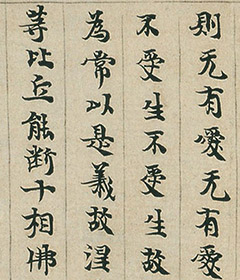 則无有愛无有愛
不受生不受生故
為常以是義故涅
等比丘能断十相佛